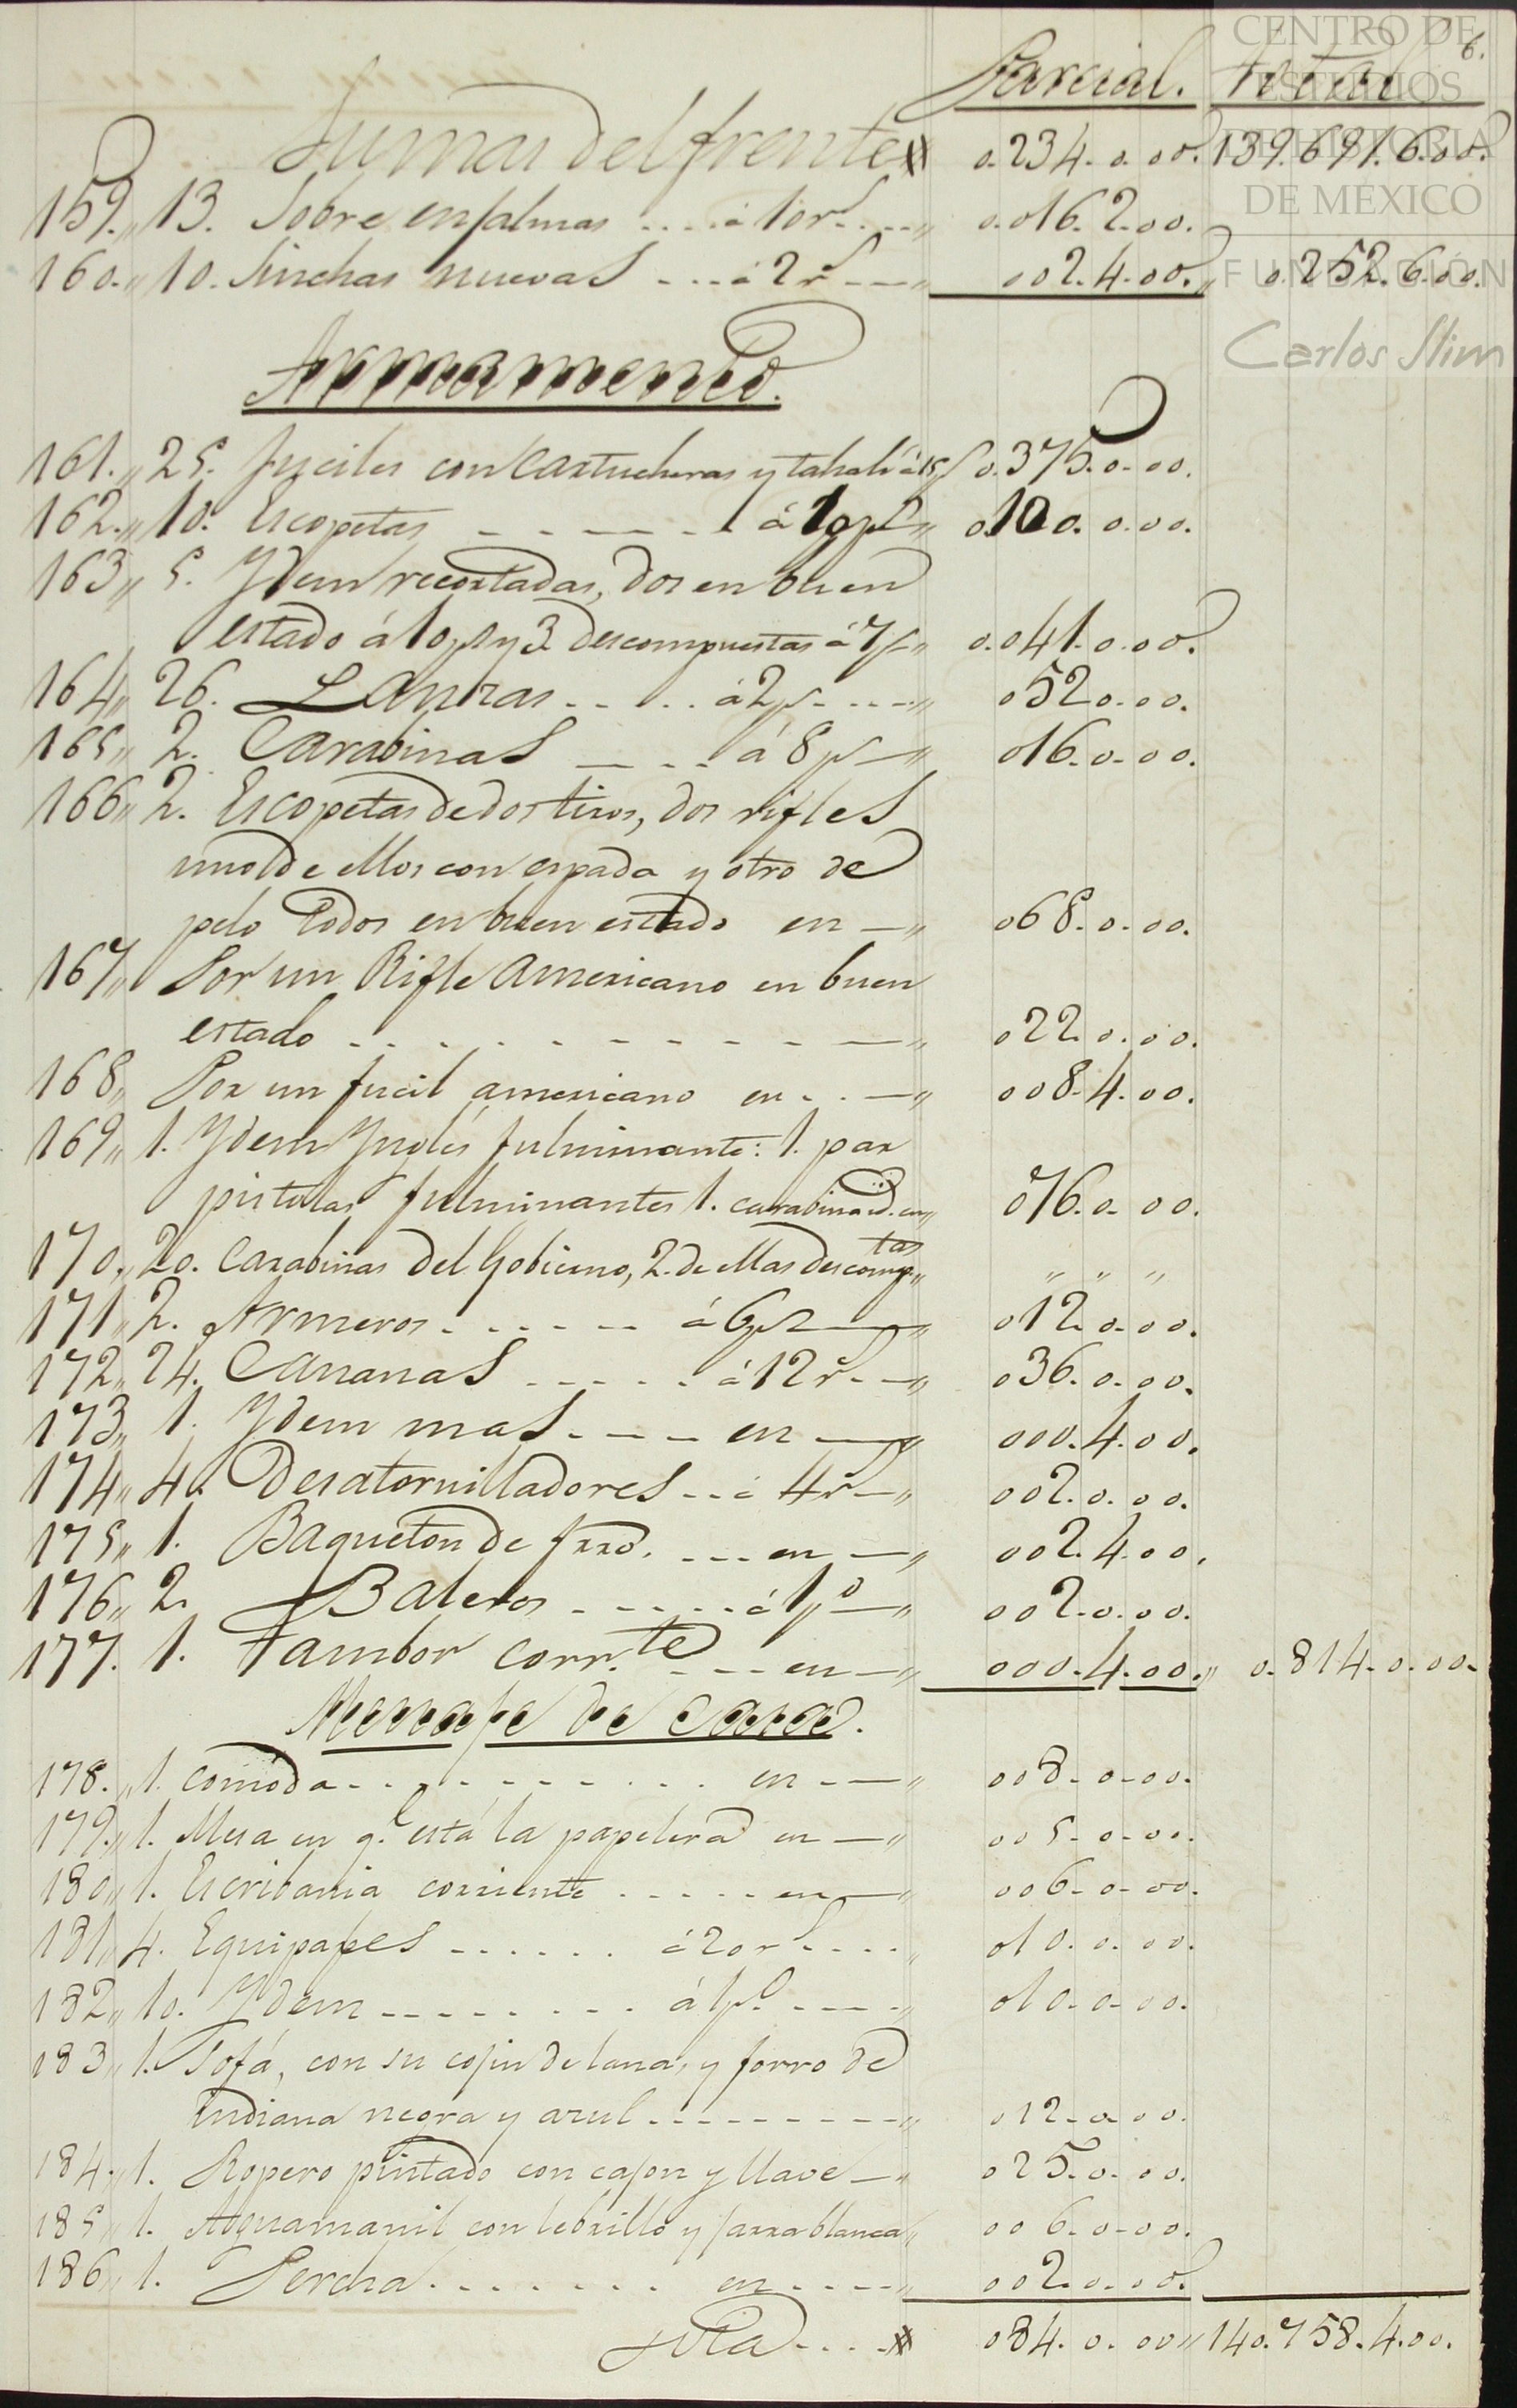 6.
Parcial. Total
Sumas del frente 0.234.0.00. 139.691.6.00.
159. 13. Sobre enjalmas .... á 10 rs .... 0.016.2.00.
160. 10. Sinchas nuevas ... á 2 rs -- 002.4.00. 0.252.6.00.
Armamento.
161. 25. fuciles con Cartucheras y tahalí á 15 ps 0.375.0.00.
162. 10. Escopetas - - - - á 10 ps 0.100.0.00.
163 5. Ydem recortadas, dos en buen
estado á 10 ps y 3 descompuestas á 7 ps 0.041.0.00.
164 26. Lanzas - - . . á 2 ps - - - 052.0.00.
165 2. Carabinas - - - á 8 ps - 016.0.00.
166 2. Escopetas de dos tiros, dos rifles
uno de ellos con espada y otro de
pelo todos en buen estado en - 068.0.00.
167 Por un Rifle Americano en buen
estado - - - - - - - - - - 022.0.00.
168 Por un fucil americano en - . - 008.4.00.
169 1. Ydem Ynglés fulminante: 1. par
pistolas fulminantes 1. carabina id. en 076.0.00.
170. 20. Carabinas del Gobierno, 2. de ellas descomptas " " "
171 2. Armeros - - - - - - á 6 ps - 012.0.00.
172 24. Cananas - - - - - á 12 rs - 036.0.00.
173 1. Ydem mas - - - en - 000.4.00.
174 4. Desatornilladores - - á 4 rs - 002.0.00.
175 1. Baqueton de frro. - - - en - 002.4.00.
176 2. Baleros - - - - - á 1 po - 002.0.00.
177. 1. Tambor corr.te - - - en - 000.4.00. 0.814.0.00.
Menaje de Casa.
178. 1. comóda - - - - - - - - - - en - - 008.0.00.
179. 1. Mesa en q.e está la papelera en - 005.0.00.
180 1. Escribania corriente - - - - - en - 006.0.00.
181 4. Equipajes - - - - - - á 20 rs - - - - 010.0.00.
182 10. Ydem - - - - - - - - á 1 po - - - - 010.0.00.
183 1. Sofá, con su cojin de lana, y forro de
indiana negra y azul - - - - - - - - - 012.0.00.
184. 1. Ropero pintado con cajon y llave - 025.0.00.
185 1. Aguamanil con lebrillo y jarra blanca 006.0.00.
186 1. Percha - - - - - - - en - - - - 002.0.00.
084.0.00 140.758.4.00.
CENTRO DE
ESTUDIOS
DE HISTORIA
DE MÉXICO
FUNDACIÓN
Carlos Slim